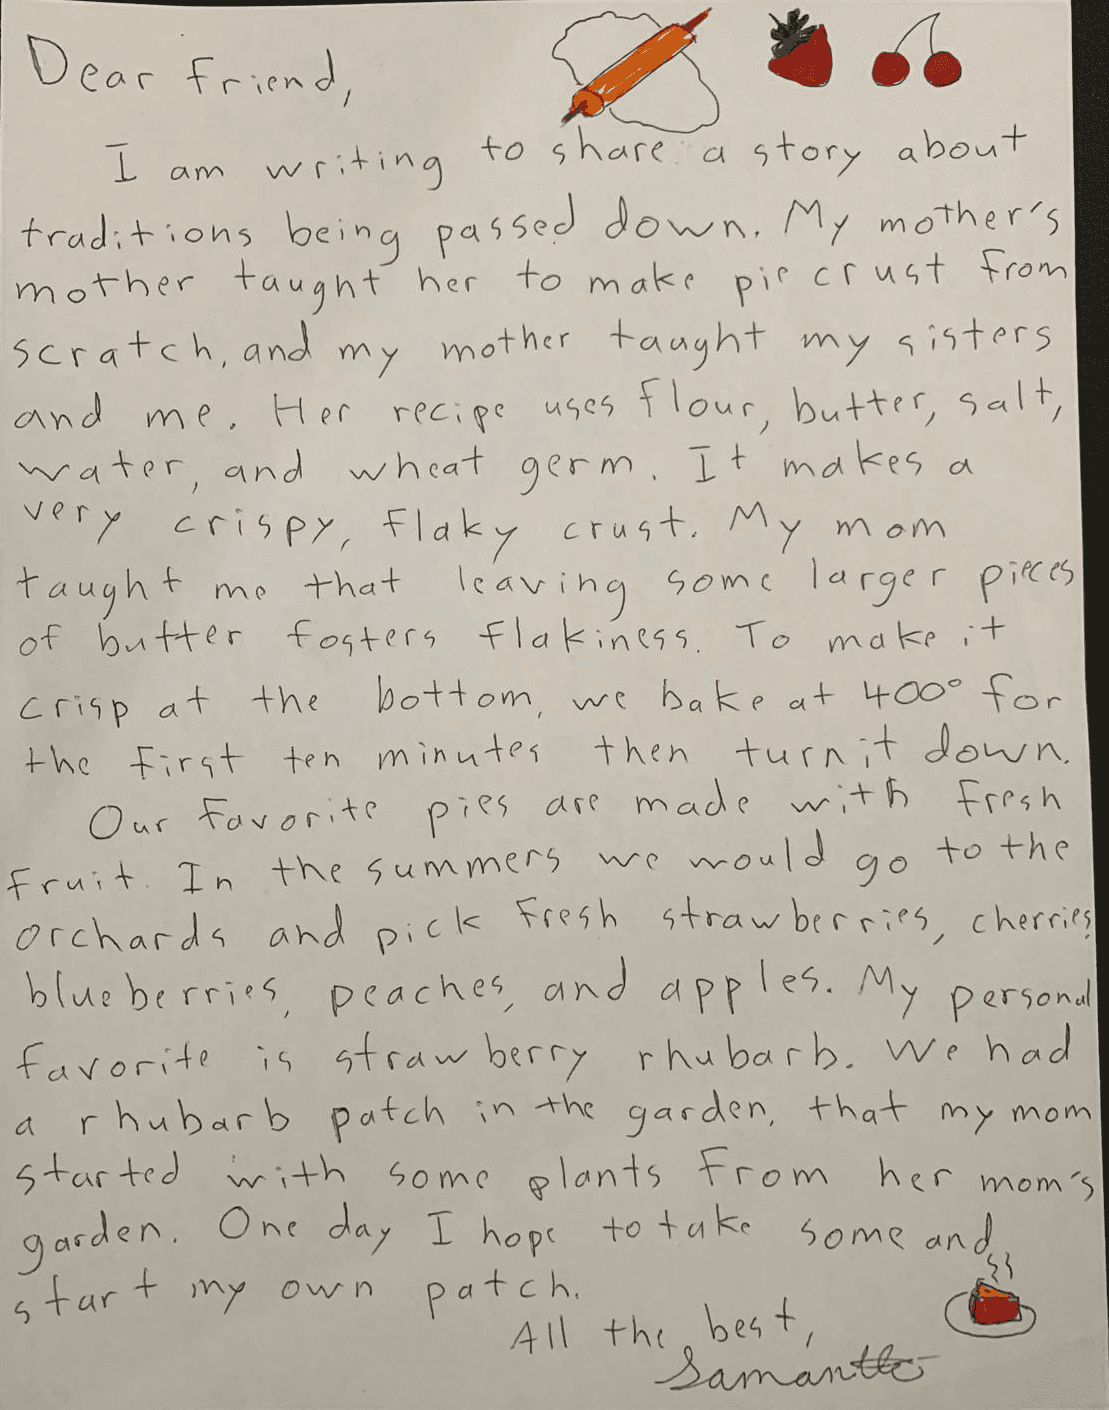 Dear friend,
I am writing to share a story about
traditions being passed down. My mother's
mother taught her to make pie crust from
scratch, and my mother taught my sisters
and me. Her recipe uses flour, butter, salt,
water, and wheat germ. It makes a
very crispy, flaky crust. My mom
taught me that leaving some larger pieces
of butter fosters flakiness. To make it
crisp at the bottom, we bake at 400° for
the first ten minutes then turn it down.
Our favorite pies are made with fresh
fruit. In the summers we would go to the
orchards and pick fresh strawberries, cherries,
blueberries, peaches, and apples. My personal
favorite is strawberry rhubarb. We had
a rhubarb patch in the garden, that my mom
started with some plants from her mom's
garden. One day I hope to take some and
start my own patch.
All the best,
Samantha